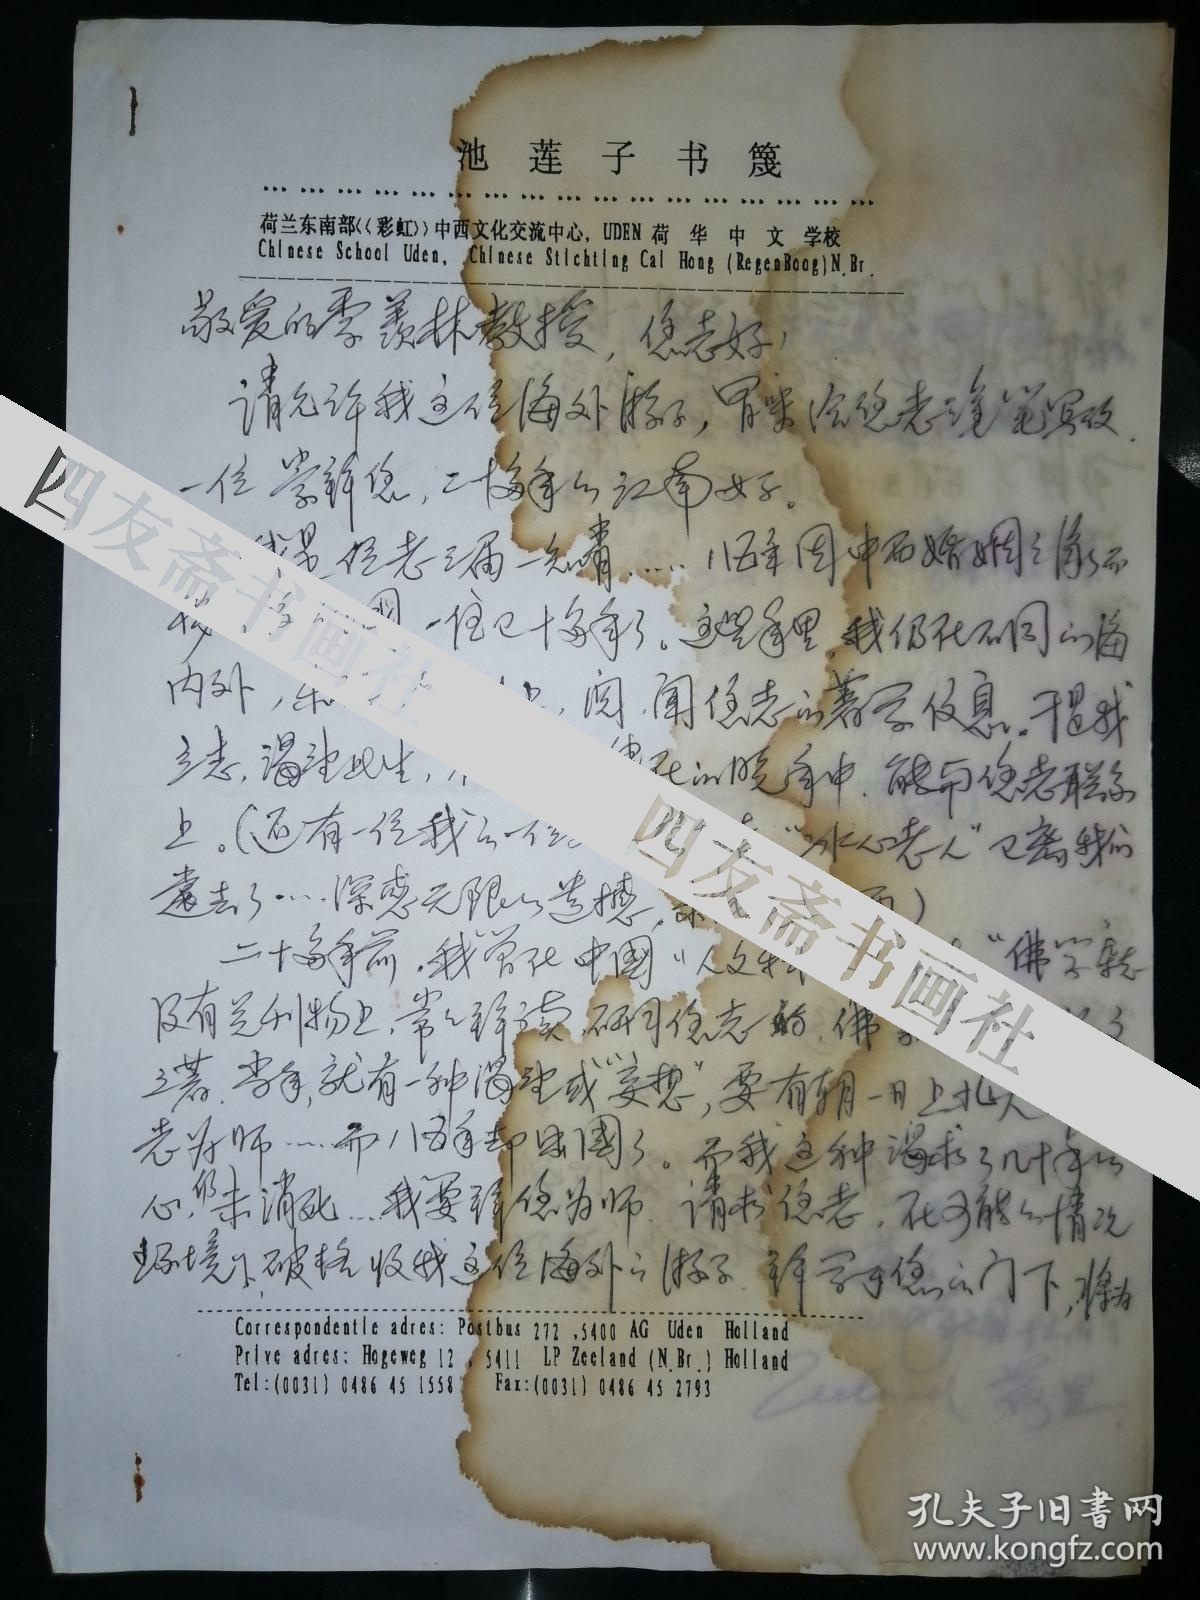 池莲子书篾
荷兰东南部《彩虹》中西文化交流中心, UDEN 荷华中文学校
Chinese School Uden, Chinese Stichting Cai Hong (RegenBoog) N.Br.
敬爱的季羡林教授，您老好！
请允许我这位海外游子，冒昧给您老
一位崇拜您，二十多年的江南女子。
我是 老三届 …… 八五年因中西婚姻之缘
一住已十多年了。这些年里，我仍在不同的海
内外， 阅，闻您老的著学信息。
立志，渴望此生， 的晚年中，能与您老联系
上。（还有一位我 一位 “冰心老人”已离我们
远去了…深感无限的遗憾，
二十多年前，我曾在中国 “佛学
及有关刊物上，常常拜读，研习您老的，佛
之著，当年，就有一种渴望或“妄想”，要有朝一日上北大
老为师……而八五年却出国了。而我这种渴求了几十年的
心，仍未消死…我要拜您为师，请求您老，在可能的情况
环境下，破格收我这位海外之游子，拜学于您的门下，
Correspondentie adres: Postbus 272 ,5400 AG Uden Holland
Prive adres: Hogeweg 12 , 5411 LP Zeeland (N.Br.) Holland
Tel:(0031) 0486 45 1558 Fax:(0031) 0486 45 2793
四友斋书画社
四友斋书画社
孔夫子旧书网
www.kongfz.com